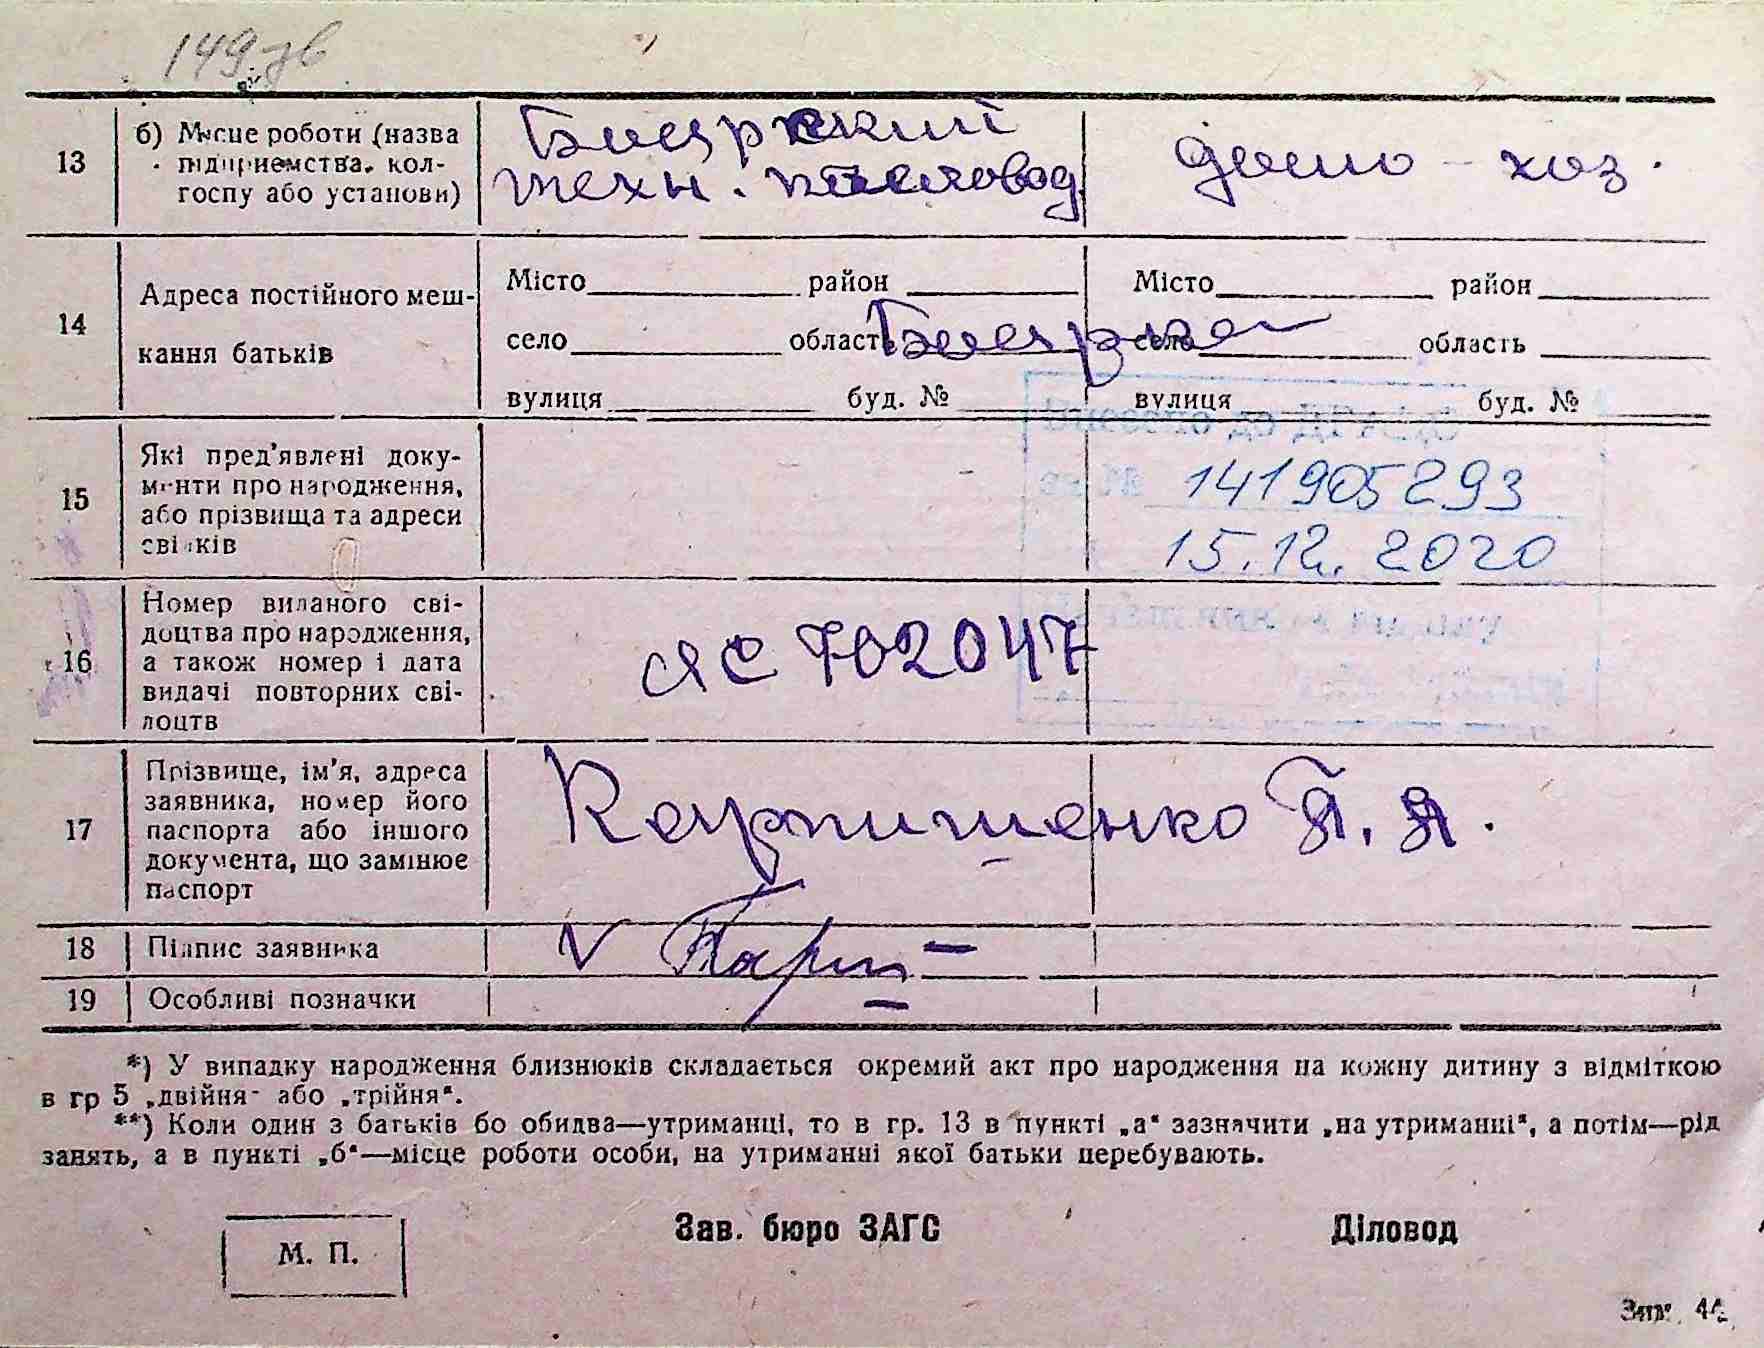 149 зв
13
б) Місце роботи (назва
підприємства, кол-
госпу або установи)
Боярский
техн. пчеловод.
домо - хоз.
14
Адреса постійного меш-
кання батьків
Місто район
село область
вулиця буд. №
Боярка
Місто район
село область
вулиця буд. №
15
Які пред’явлені доку-
менти про народження,
або прізвища та адреси
свідків
141905293
15.12.2020
16
Номер виданого сві-
доцтва про народження,
а також номер і дата
видачі повторних сві-
доцтв
ЯС 702047
17
Прізвище, ім’я, адреса
заявника, номер його
паспорта або іншого
документа, що замінює
паспорт
П. Я.
18
Підпис заявника
V
19
Особливі позначки
*) У випадку народження близнюків складається окремий акт про народження на кожну дитину з відміткою
в гр 5 „двійня“ або „трійня“.
**) Коли один з батьків бо обидва—утриманці, то в гр. 13 в пункті „а“ зазначити „на утриманні“, а потім—рід
занять, а в пункті „б“—місце роботи особи, на утриманні якої батьки перебувають.
М. П.
Зав. бюро ЗАГС
Діловод